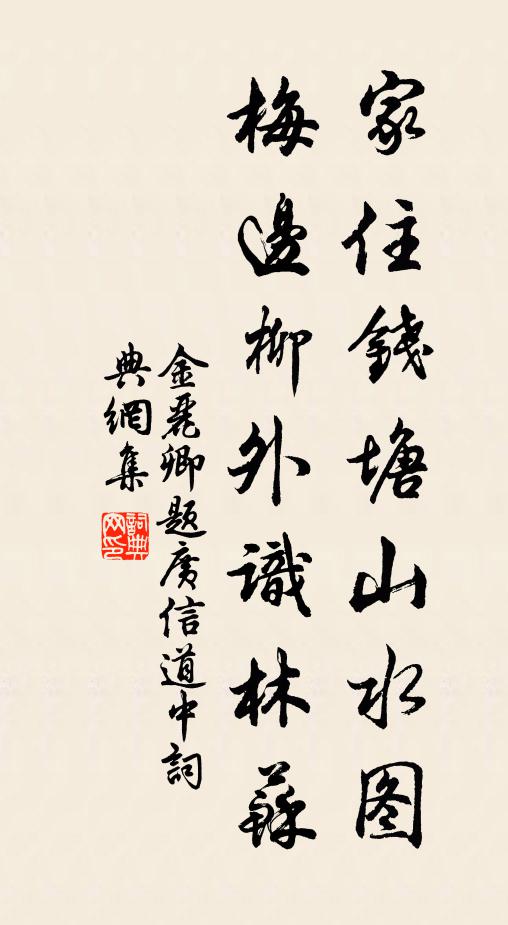 家住錢塘山水图
梅邊柳外識林蘇
金麗卿題廣信道中詞
典網集
詞典
网印